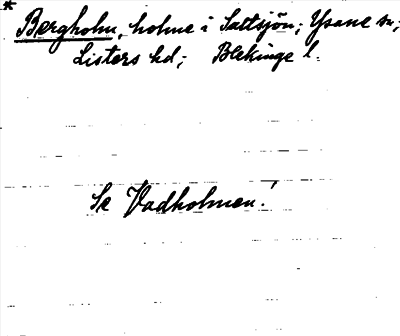 * Bergholm, holme i Saltsjön; Ysane sn;
Listers hd; Blekinge l.
Se Vadholmen!